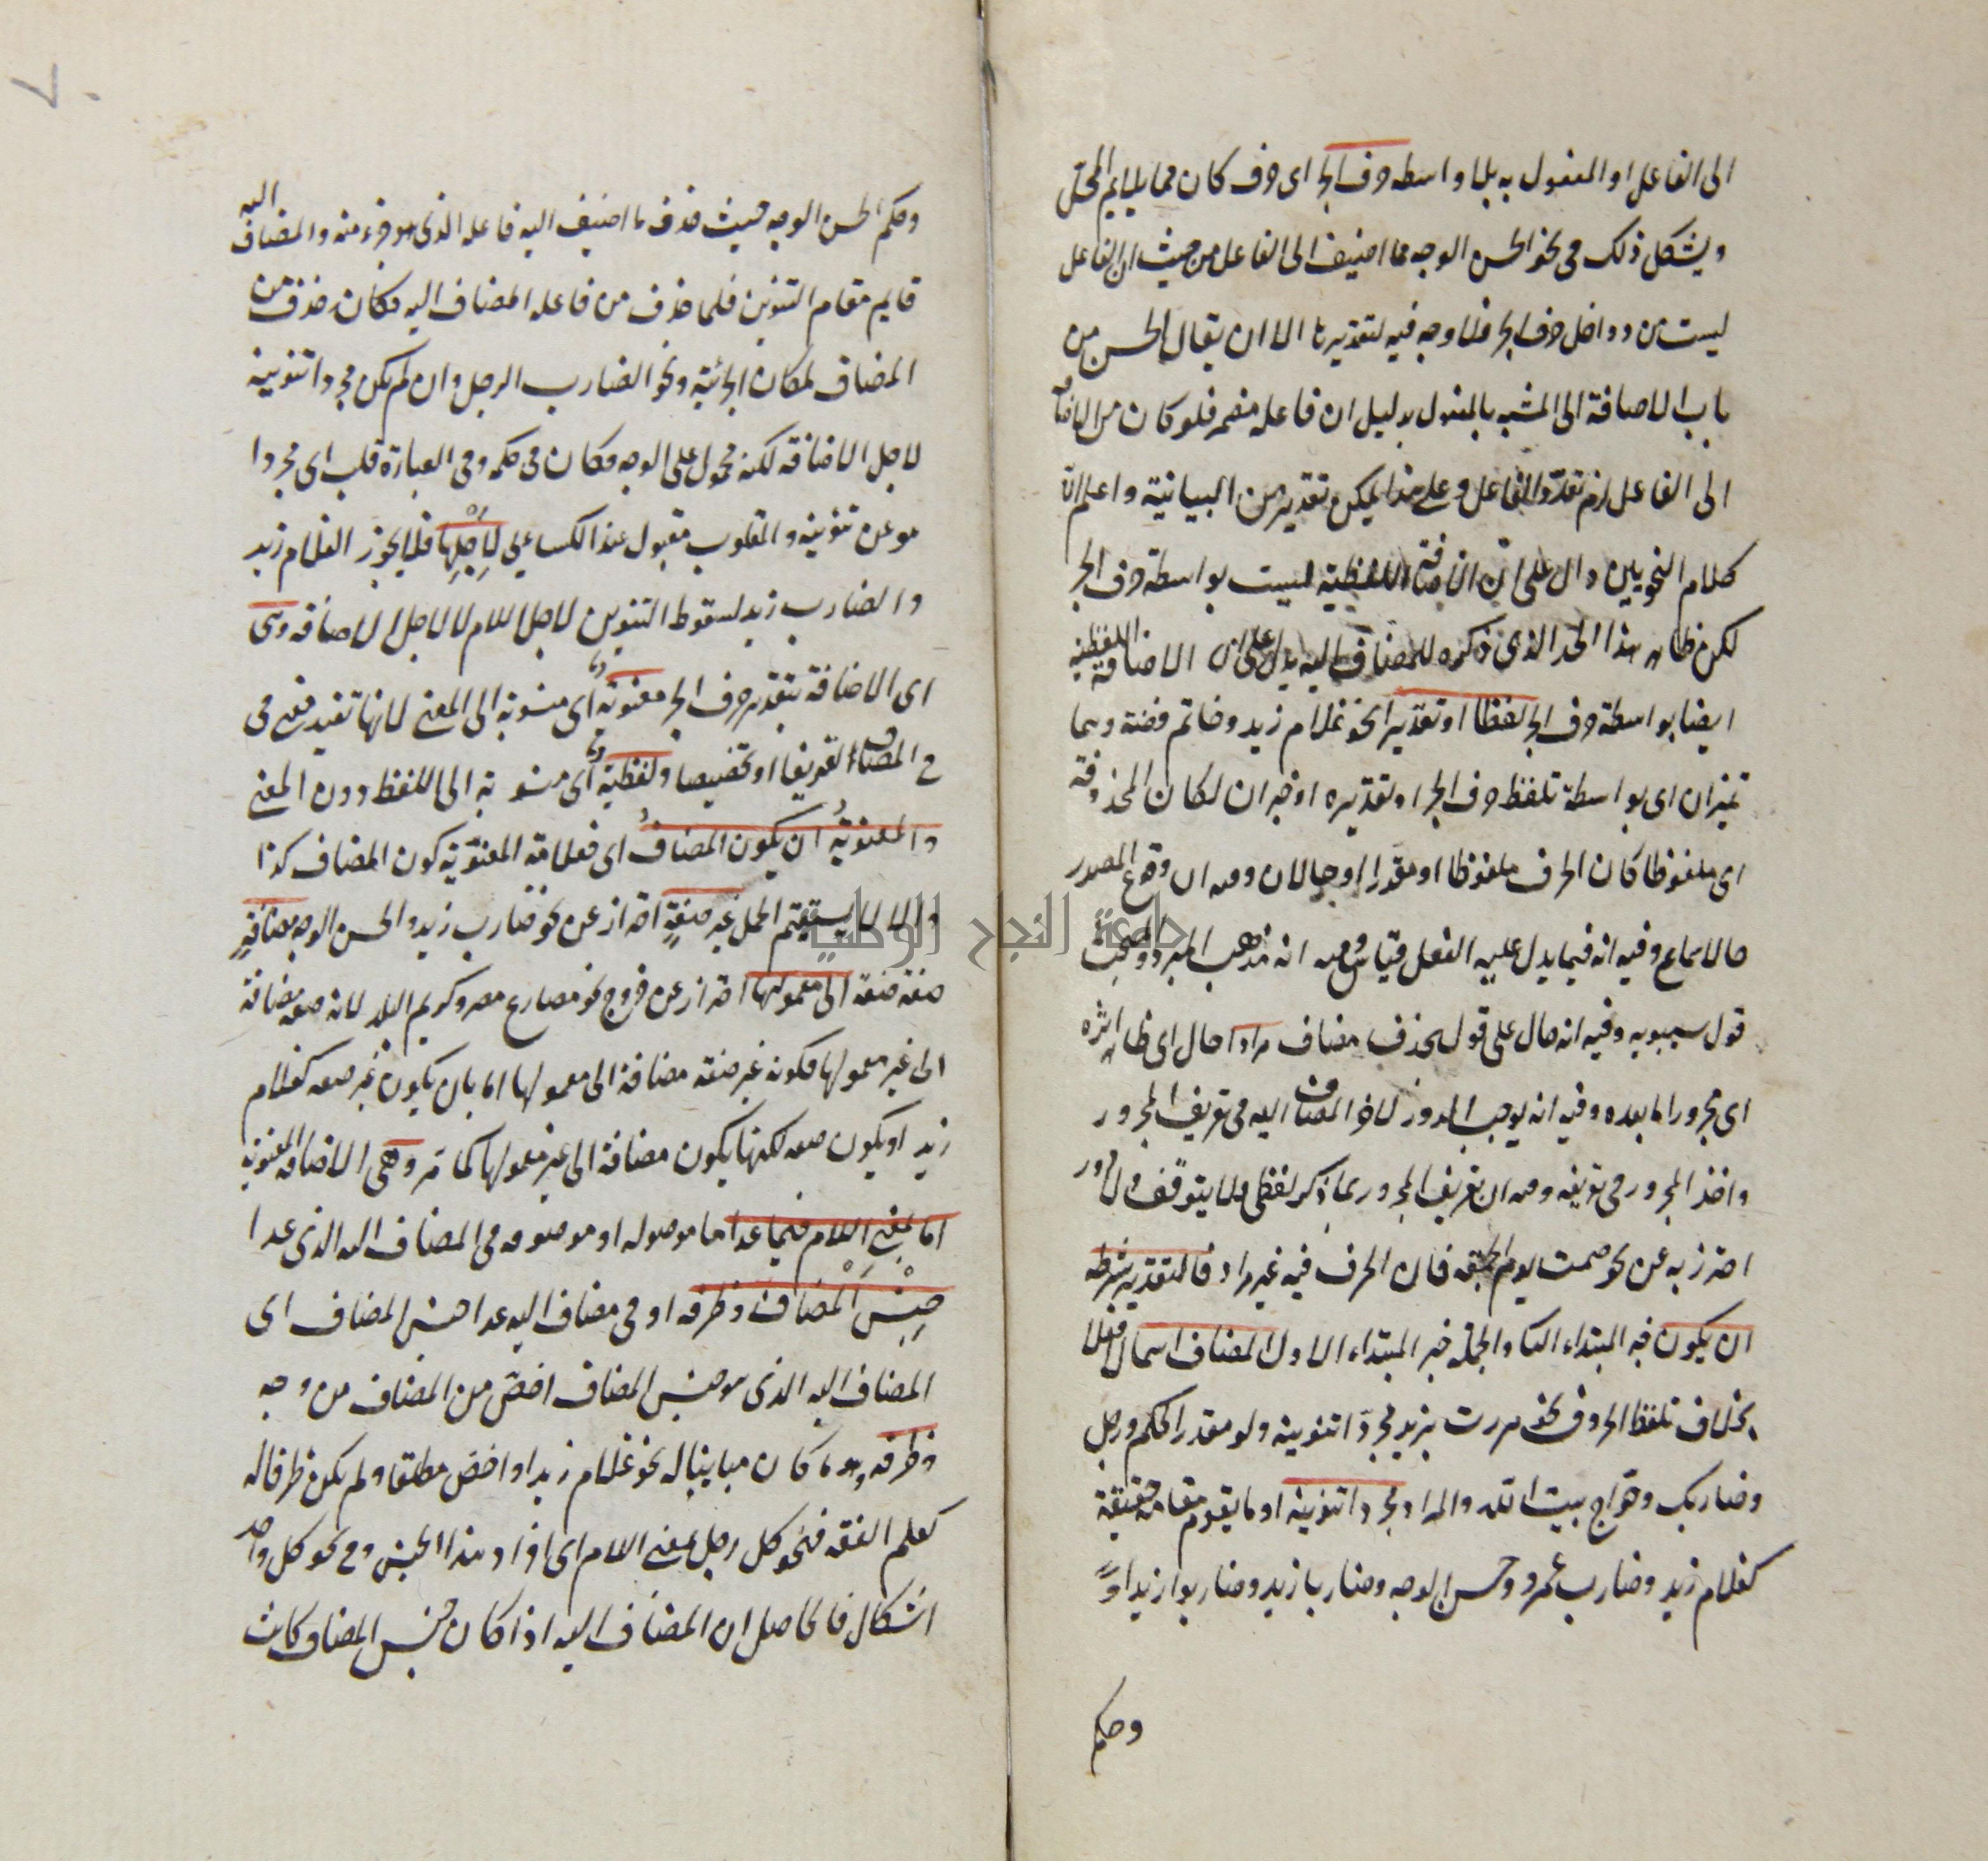 الى الفاعل او المفعول به بلا واسطه حرف الجر اى حرف كان مما يلايم المحل
ويشكل ذلك فى نحو الحسن الوجه مما اضيف الى الفاعل من حيث ان الفاعل
ليست من دواخل حرف الجر فلا وجه فيه لتقديرها الا ان يقال الحسن من
باب الاضافة الى المشبه بالمفعول بدليل ان فاعله مضمر فلو كان من الاضافة
الى الفاعل لزم تعدّد الفاعل وعلى هذا يمكن تقدير من البيانية واعلم انّ
كلام النحويين دال على انّ الاضافة اللفظية ليست بواسطة حرف الجر
لكن ظاهر هذا الحد الذى ذكره للمضاف اليه يدل على ان الاضافة اللفظية
ايضا بواسطة حرف الجر لفظا او تقديرا نحو غلام زيد وخاتم فضة وهما
تميزان اى بواسطة تلفظ حرف الجر او تقديره او خبران لكان المحذوفة
اى ملفوظا كان الحرف ملفوظا او مقدرا او حالان وفيه ان وقوع المصدر
حالا سماع وفيه انه فيما يدل عليه الفعل قياس وفيه انه مذهب المبرد
قول سيبويه وفيه انه حال على قول بحذف مضاف مرادا حال اى ظاهرا اثره
اى مجرورا ما بعده وفيه انه يوجب الدور لاخذ المضاف اليه فى تعريف المجرور
واخذ المجرور فى تعريفه وفيه ان تعريف المجرور بما ذكر لفظى فلا يتوقف فلا دور
احترز به عن نحو صمت يوم الجمعة فان الحرف فيه غير مراد فالتقدير شرطه
ان يكون فيه المبتداء الثانى والجملة خبر المبتداء الاول المضاف اسما لا فعلا
بخلاف تلفظ الحروف نحو مررت بزيد مجردا تنوينه ولو مقدرا كحكم ورجل
وضاربك وحوّاج بيت الله والمراد مجردا تنوينه او ما يقوم مقامه حقيقة
كغلام زيد وضارب عمرو وحسن الوجه وضاربا زيد وضاربوا زيد او
وحكم
وحكم الحسن الوجه حيث حذف ما اضيف اليه فاعله الذى هو جزء منه والمضاف اليه
قايم مقام التنوين فلما حذف من فاعله المضاف اليه فكانه حذف من
المضاف لمكان الجزئية ونحو الضارب الرجل وان لم يكن مجردا تنوينه
لاجل الاضافة لكنه محمول على الوجه فكان فى حكمه وفى العبارة قلب اى مجردا
هو عن تنوينه والمقلوب مقبول عند الكسائى لاجلها فلا يجوز الغلام زيد
والضارب زيد لسقوط التنوين لاجل اللام لا لاجل الاضافه وهى
اى الاضافة بتقدير حرف الجر معنوية اى منسوبة الى المعنى لانها تفيد معنى فى
المضاف تعريفا او تخصيصا ولفظية اى منسوبة الى اللفظ دون المعنى
والمعنوية ان يكون المضاف اى فعلامة المعنوية كون المضاف كذا
والا لا يستقيم الحمل غير صفة احتراز عن نحو ضارب زيد والحسن الوجه مضافة
صفة صفة الى معمولها احتراز عن خروج نحو مصارع مصر وكريم البلد لانه صفة مضافة
الى غير معمولها فكونه غير صفة مضافة الى معمولها اما بان يكون غير صفه كغلام
زيد او يكون صفه لكنها يكون مضافة الى غير معمولها كما مر وهى الاضافة المعنوية
اما بمعنى اللام فيما عدا ما موصوله او موصوفه فى المضاف اليه الذى عدا
جنس المضاف وظرفه او فى مضاف اليه عدا جنس المضاف اى
المضاف اليه الذى هو جنس المضاف اخصّ من المضاف من وجه
وظرفه وهو ما كان مباينا له نحو غلام زيد او اخص مطلقا ولم يكن ظرفا له
كعلم الفقه فنحو كل رجل بمعنى اللام اى افراد هذا الجنس وفى نحو كل واحد
اشكال فالحاصل ان المضاف اليه اذا كان جنس المضاف كانت
جامعة النجاح الوطنية